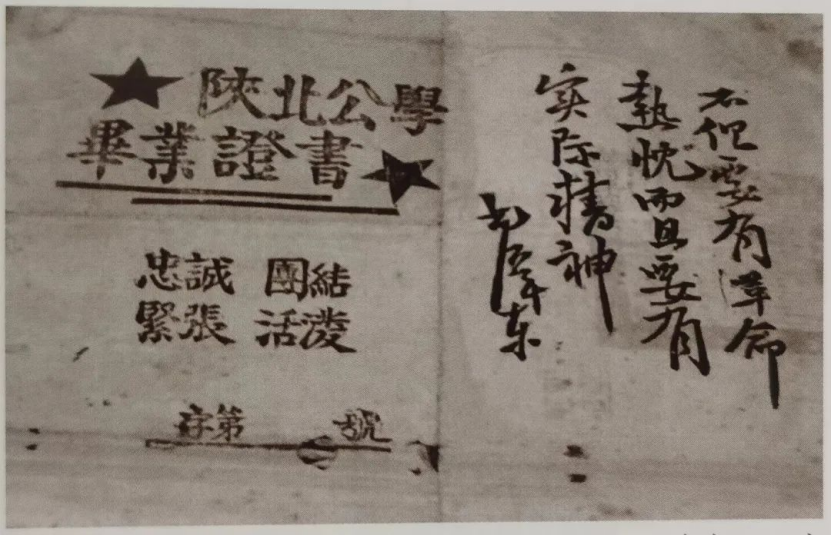 陝北公學
畢業證書
忠誠 團結
緊張 活潑
字第 號
不但要有革命
熱忱而且要有
实际精神
毛泽东